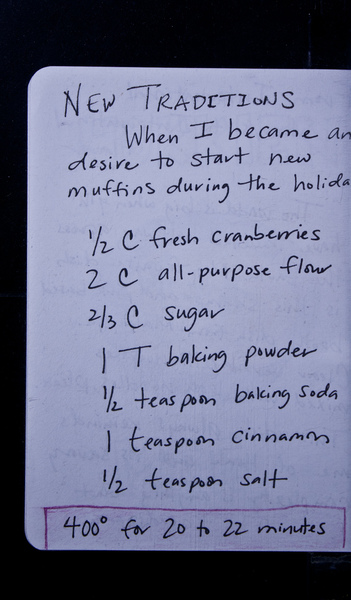 NEW TRADITIONS
When I became an
desire to start new
muffins during the holida
1/2 C fresh cranberries
2 C all-purpose flour
2/3 C sugar
1 T baking powder
1/2 teaspoon baking soda
1 teaspoon cinnamon
1/2 teaspoon salt
400° for 20 to 22 minutes